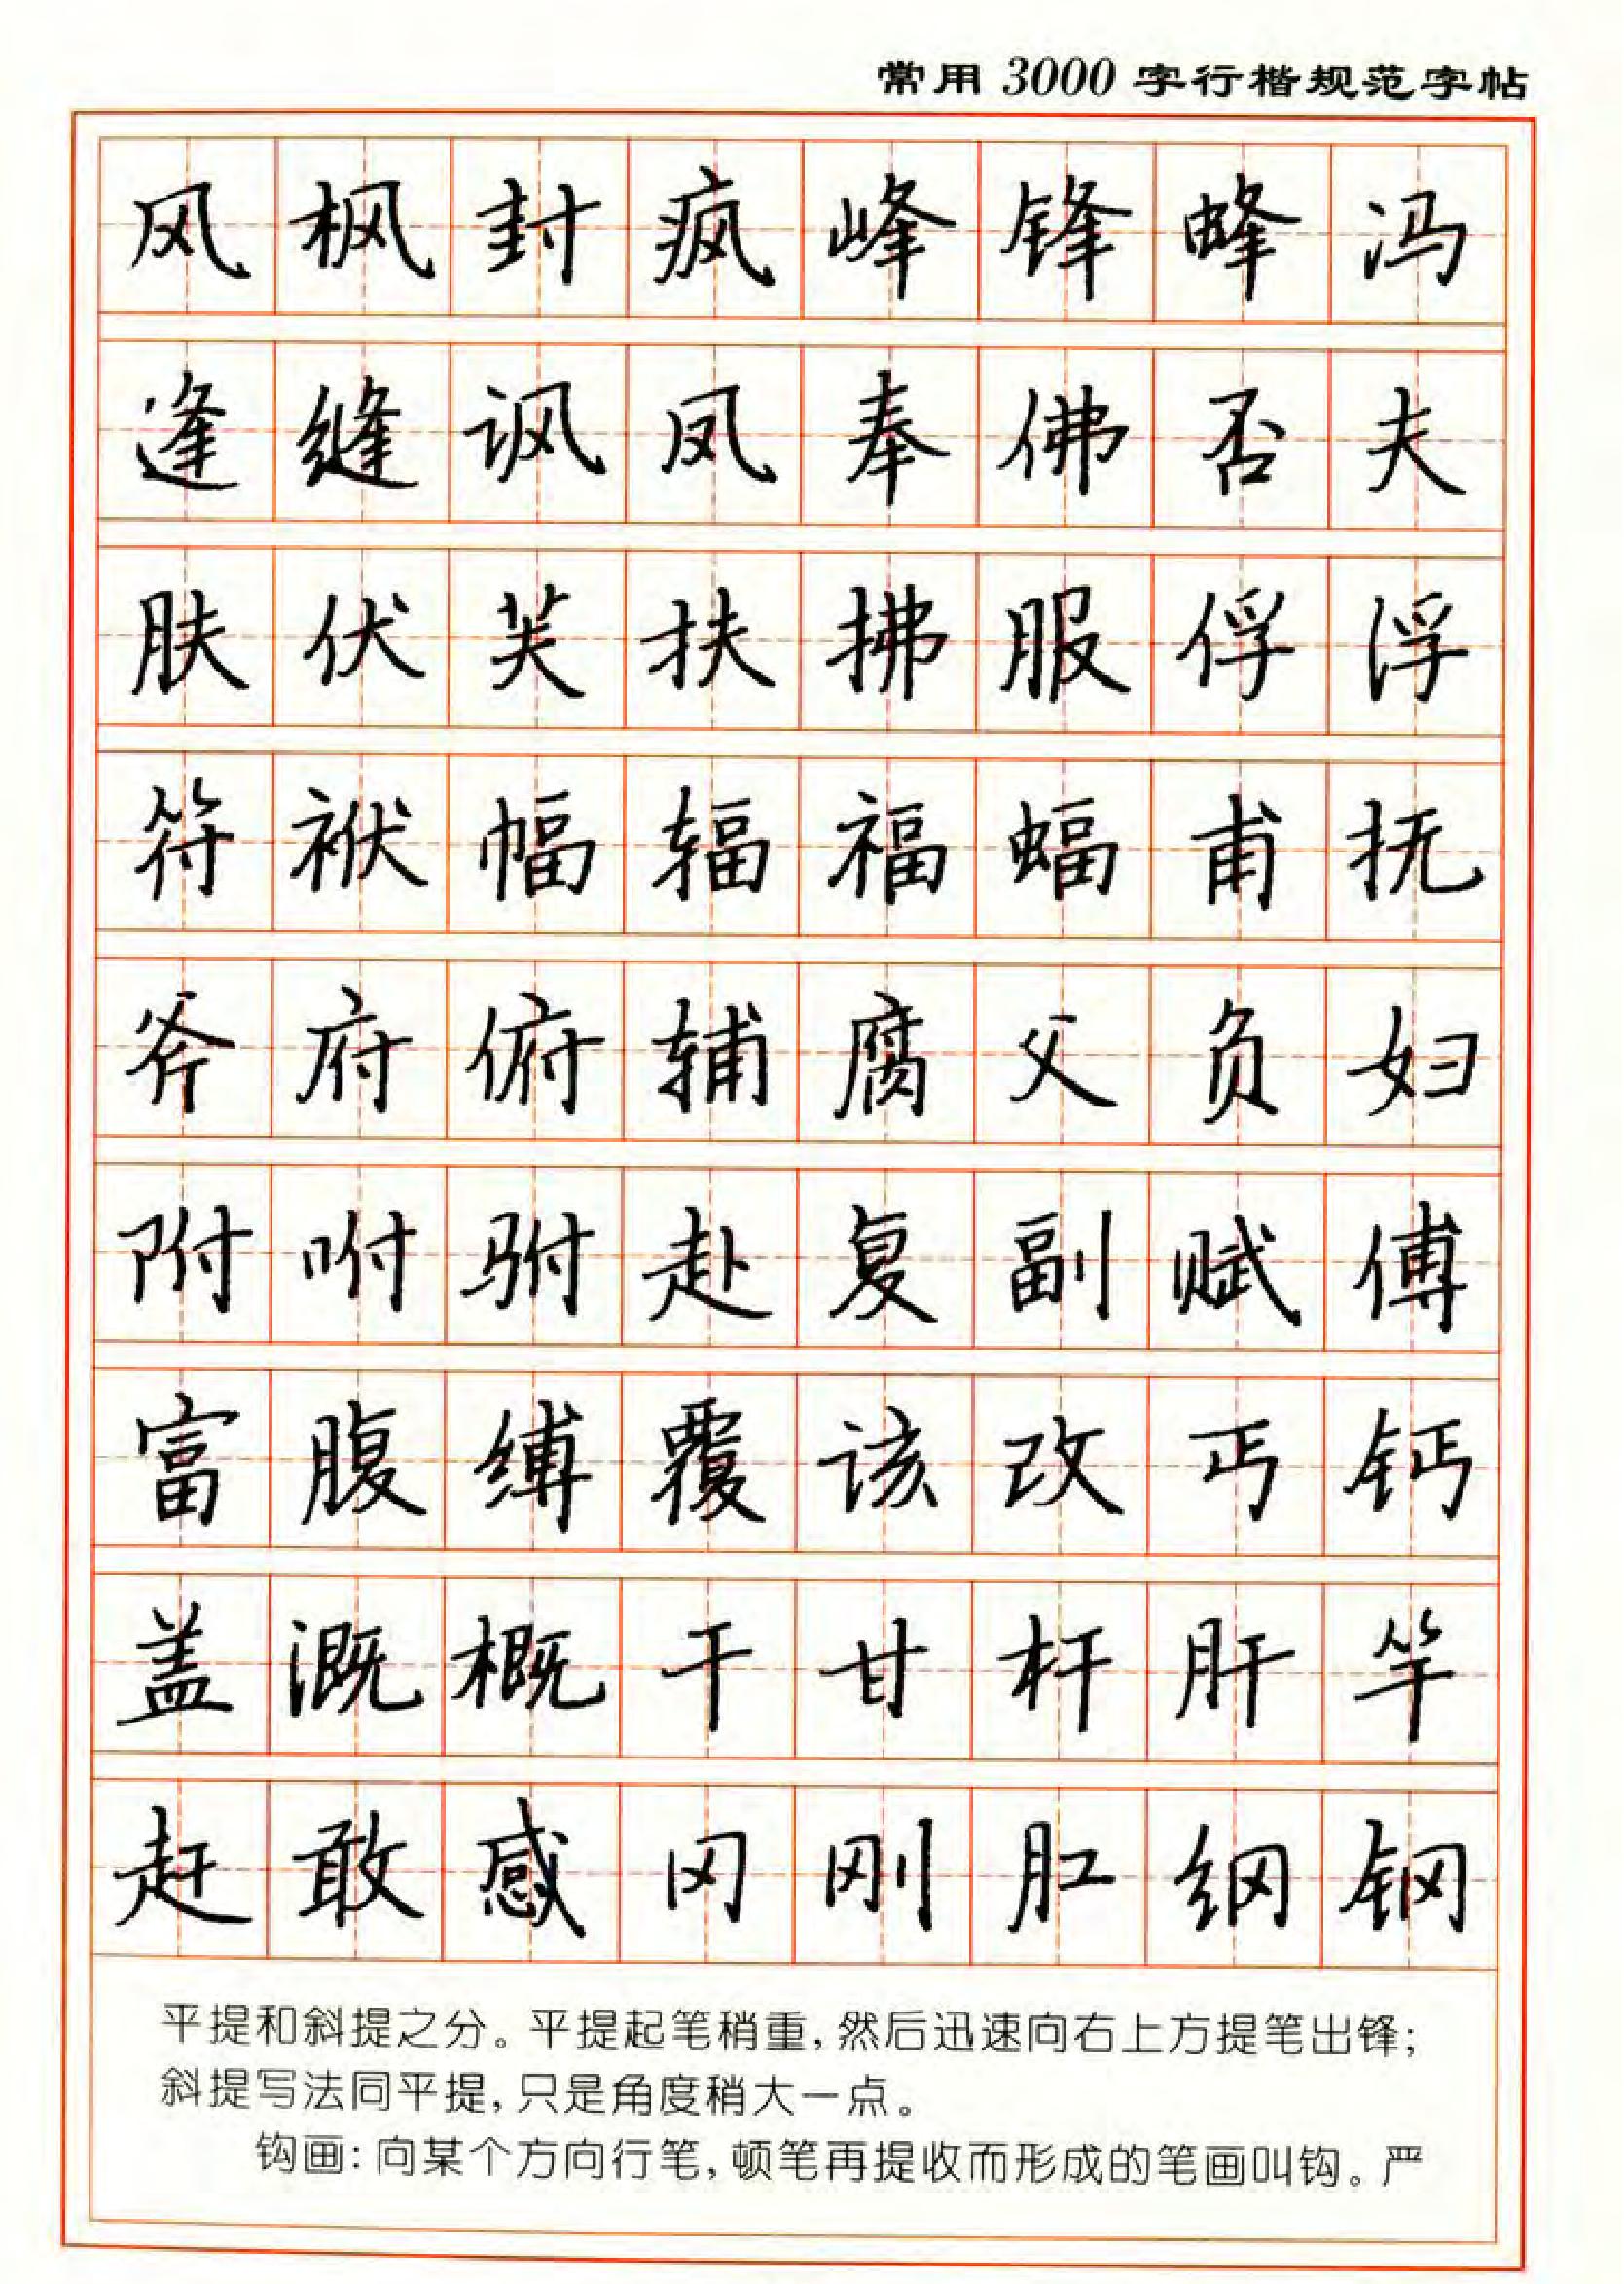 常用3000字行楷规范字帖
风枫封疯峰锋蜂冯
逢缝讽凤奉佛否夫
肤伏芙扶拂服俘浮
符袱幅辐福蝠甫抚
斧府俯辅腐父负妇
附咐驸赴复副赋傅
富腹缚覆该改丐钙
盖溉概干甘杆肝竿
赶敢感冈刚肛纲钢
平提和斜提之分。平提起笔稍重，然后迅速向右上方提笔出锋；
斜提写法同平提，只是角度稍大一点。
钩画：向某个方向行笔，顿笔再提收而形成的笔画叫钩。严